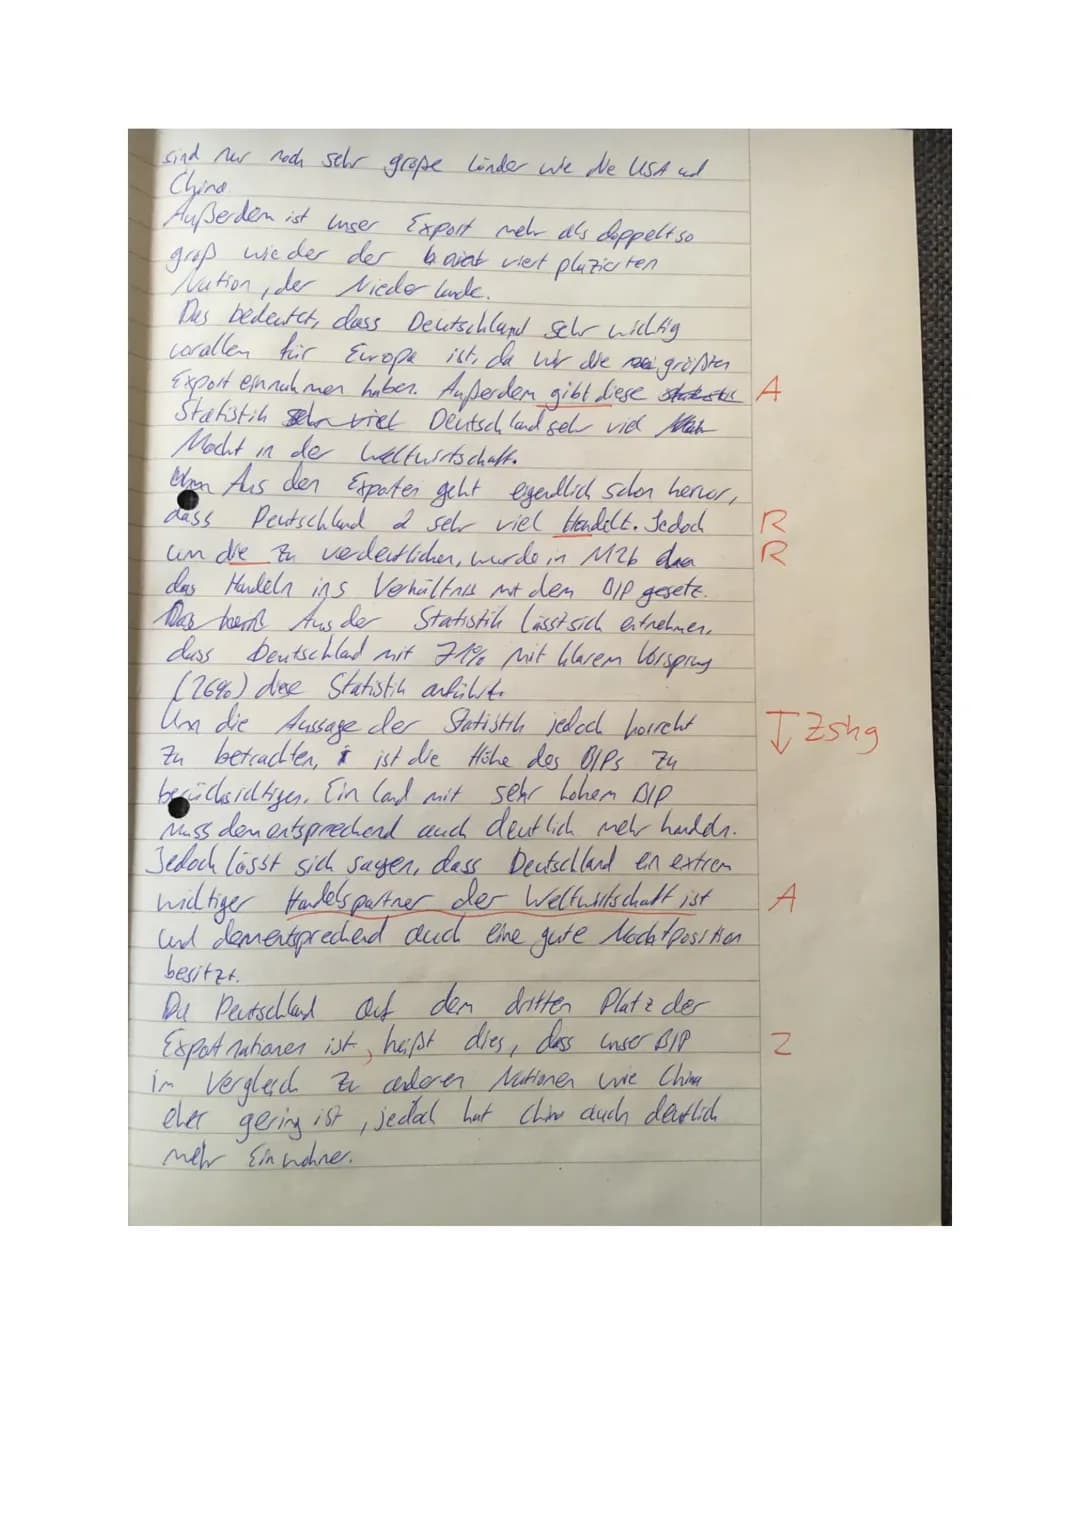 sind nur noch sehr große Länder wie die USA und
China
Außerdem ist unser Export mehr als doppelt so
groß wie der der viert plazierten
Nation, der Niederlande.
Das bedeutet, dass Deutschland sehr wichtig
vorallem für Europa ist, da wir die größten
Exporteinnahmen haben. Außerdem gibt diese A
Statistik sehr viel Deutschland sehr viel
Macht in der Weltwirtschaft.
Aus den Exporten geht eigendlich schon hervor,
dass Deutschland sehr viel Handelt. Jedoch R
um die zu verdeutlichen, wurde in M2b R
das Handeln ins Verhältnis mit dem BIP gesetz.
Aus der Statistik lässt sich entnehmen,
dass Deutschland mit 71% mit klarem Vorsprung
(26%) diese Statistik anführt.
Um die Aussage der Statistik jedoch korrekt Zshg
zu betrachten, ist die Höhe des BIPs zu
berücksichtigen. Ein Land mit sehr hohem BIP
muss dementsprechend auch deutlich mehr handeln.
Jedoch lässt sich sagen, dass Deutschland ein extrem
wichtiger Handelspartner der Weltwirtschaft ist A
und dementsprechend auch eine gute Machtposition
besitzt.
Da Deutschland auf dem dritten Platz der
Exportnationen ist, heißt dies, dass unser BIP Z
im Vergleich zu anderen Nationen wie China
eher gering ist, jedoch hat China auch deutlich
mehr Einwohner.